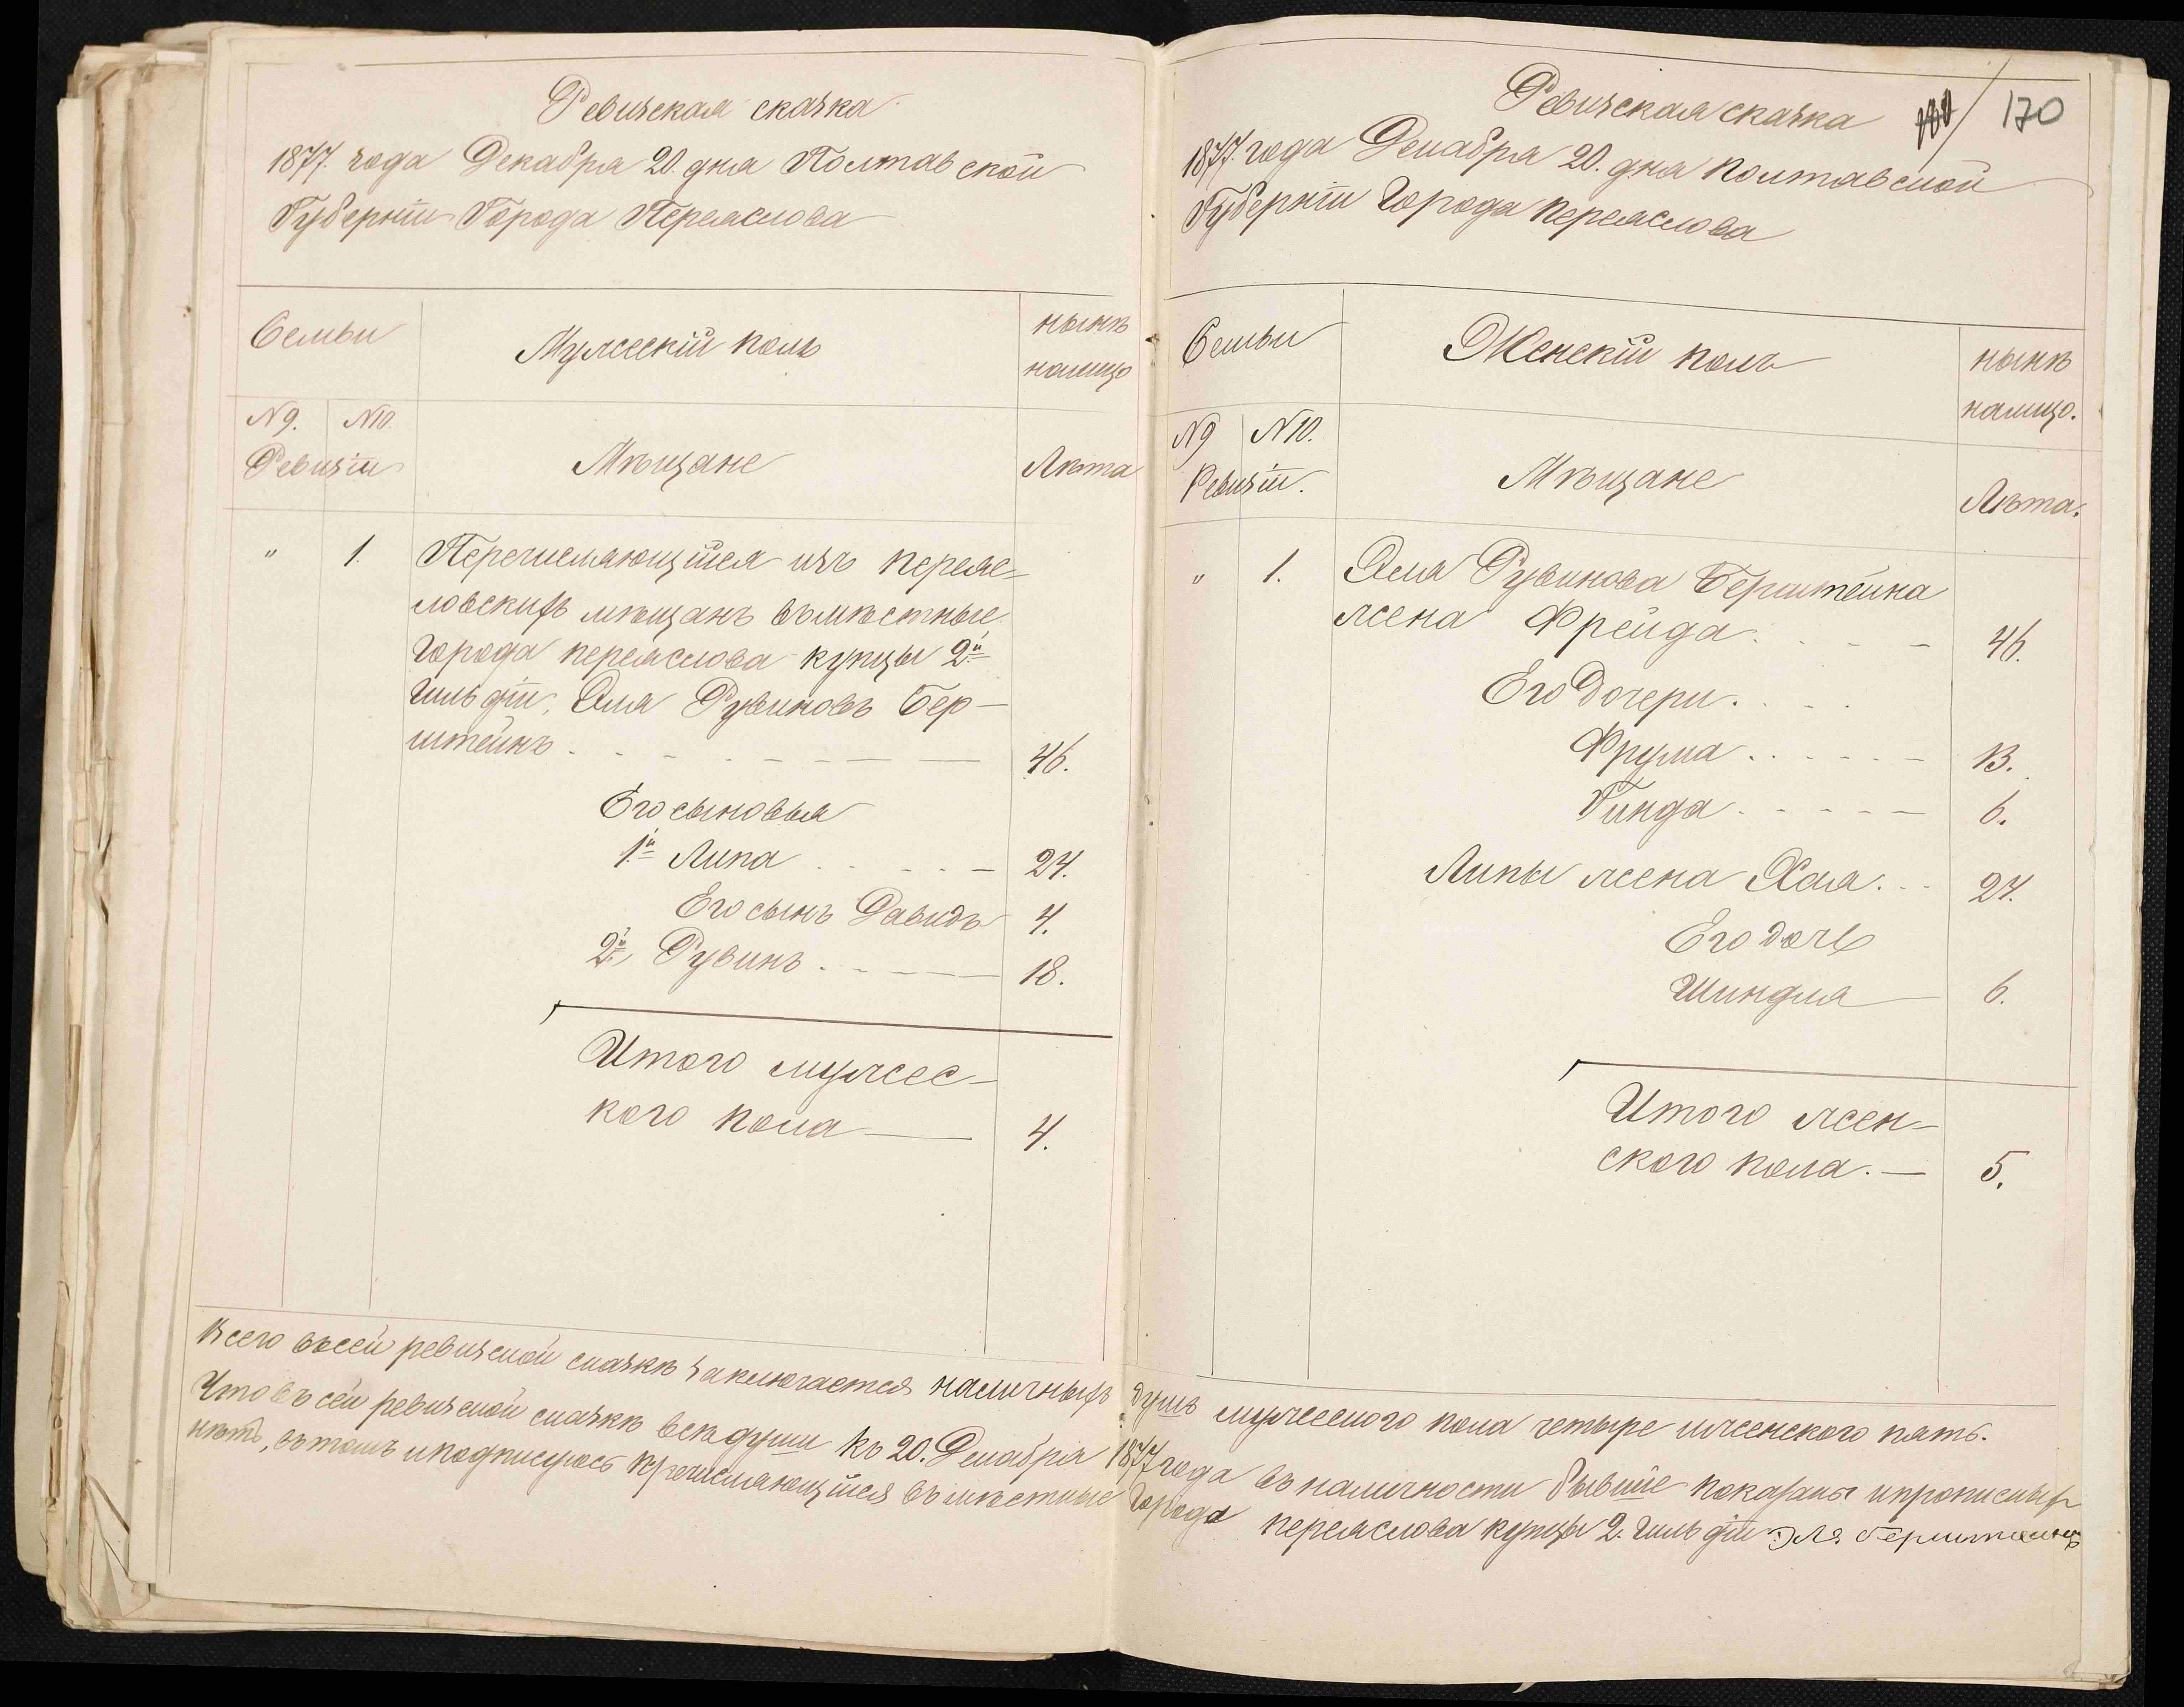 Ревизская сказка
1877. года Декабря 20. дня Полтавской
Губерніи Города Переяслова
Семьи
Мужескій полъ
нынѣ
налицо
N 9.
N 10.
Ревизіи
Мѣщане
Лѣта
"
1.
Перечисляющійся изъ переяс-
ловскихъ мѣщанъ въ мѣстные
Города переяслова купцы 2й
Гильдіи, Эля Рувиновъ Бер-
штейнъ
46.
Его сыновья
1й Липа
24.
Его сынъ Давидъ
4.
2й, Рувинъ
18.
Итого мужес-
кого пола
4.
Ревизская сказка
170
1877. года Декабря 20. дня полтавской
Губерніи Города переяслова
Семьи
Женскій полъ
нынѣ
налицо.
N 9
N 10.
Ревизіи.
Мѣщане
Лѣта.
"
1.
Эля Рувинова Берштейна
жена Фрейда
46.
Его Дочери.
Фрума
13.
Гинда
6.
Липы жена Хая
24.
Его дочь
Шиндля
6.
Итого жен-
ского пола.
5.
Всего въ сей ревизской сказкѣ заключается наличныхъ душъ мужеского пола четыре и женского пять.
Что въ сей ревизской сказкѣ всѣ души къ 20. Декабря 1877 года въ наличности бывшіе показаны и прописныхъ
нѣтъ, въ томъ и подписуюсь перечисляющійся въ мѣстные Города переяслова купцы 2. Гильдіи Эля Берштейнъ